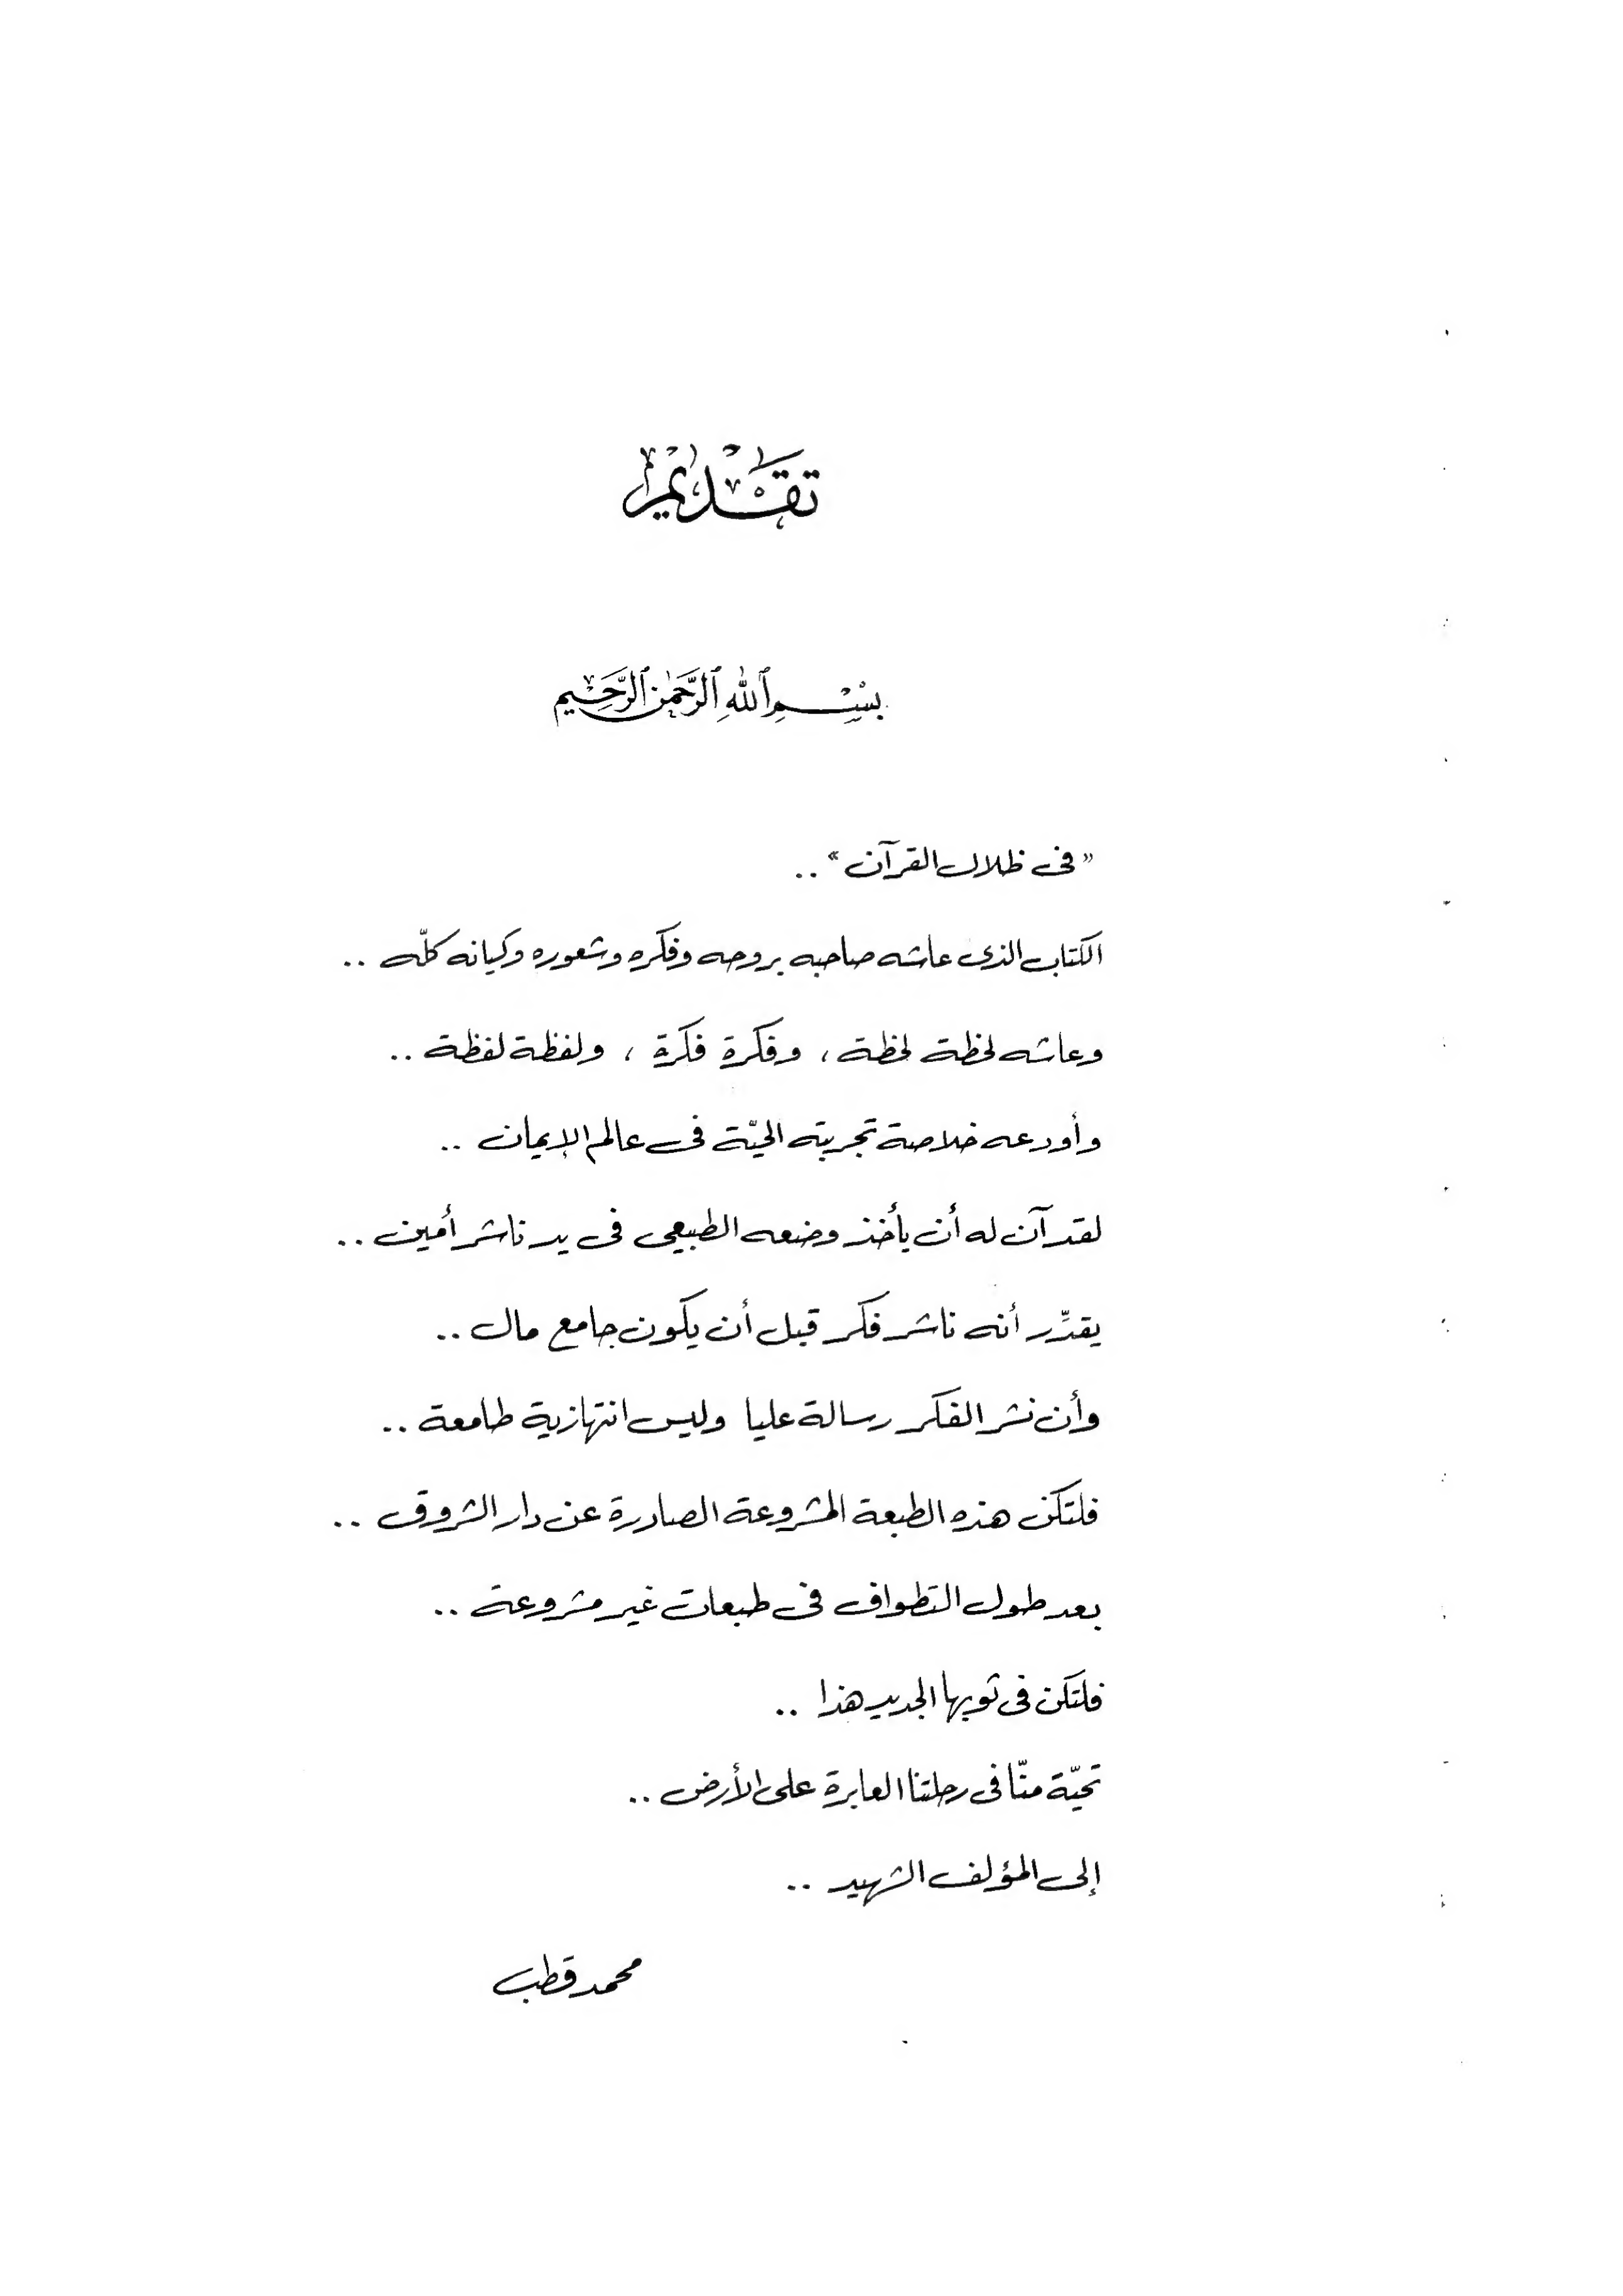 تقديم
بسم الله الرحمن الرحيم
"فى ظلال القرآن" ..
الكتاب الذى عاشه صاحبه بروحه وفكره وشعوره وكيانه كلّه ..
وعاشه لحظة لحظة ، وفكرة فكرة ، ولفظة لفظة ..
وأودعه خلاصة تجربته الحيّة فى عالم الإيمان ..
لقد آن له أن يأخذ وضعه الطبيعى فى يد ناشر أمين ..
يقدِّر أنه ناشر فكر قبل أن يكون جامع مال ..
وأن نشر الفكر رسالة عليا وليس انتهازية طامعة ..
فلتكن هذه الطبعة المشروعة الصادرة عن دار الشروق ..
بعد طول التطواف فى طبعات غير مشروعة ..
فلتكن فى ثوبها الجديد هذا ..
تحيّة منّا فى رحلتنا العابرة على الأرض ..
إلى المؤلف الشهيد ..
محمد قطب